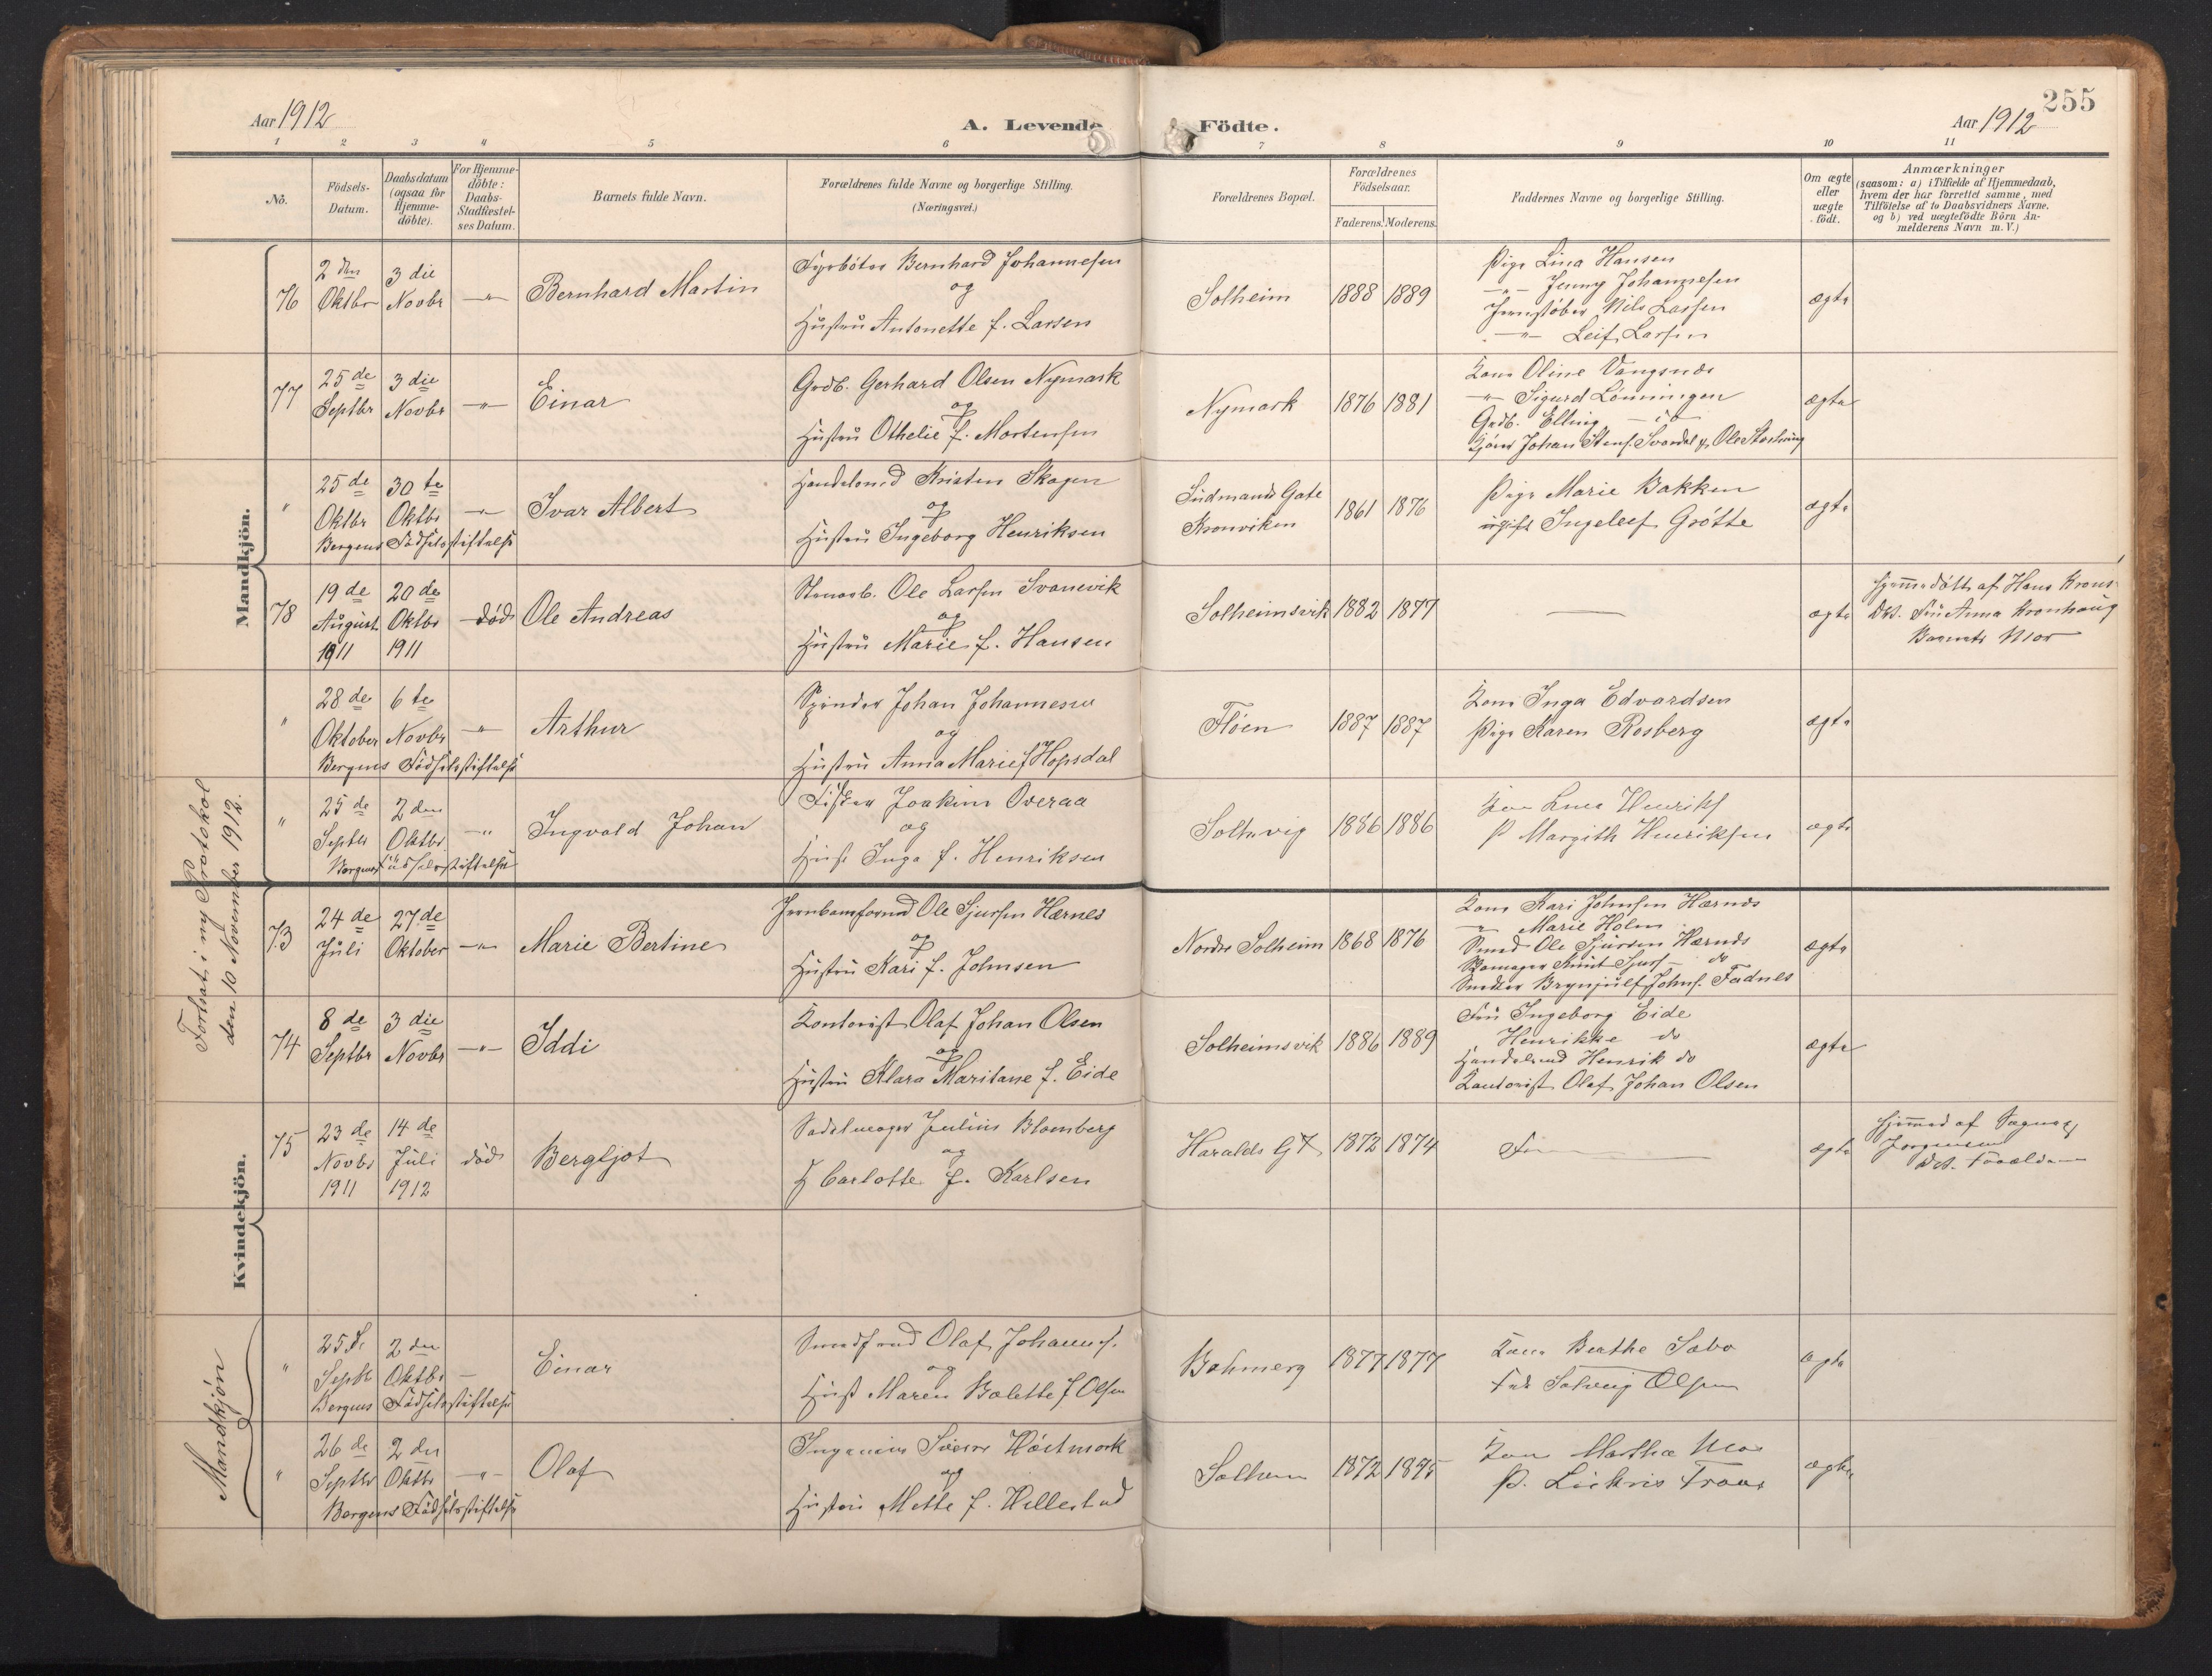 255
Aar 1912
A. Levende Födte.
Aar 1912
1 2 3 4 5 6 7 8 9 10 11
No.
Födsels-Datum.
Daabsdatum (ogsaa for Hjemme-döbte).
For Hjemme-döbte: Daabs-Stadfæstel-ses Datum.
Barnets fulde Navn.
Forældrenes fulde Navne og borgerlige Stilling.
(Næringsvei.)
Forældrenes Bopæl.
Forældrenes Födselsaar.
Faderens. Moderens.
Faddernes Navne og borgerlige Stilling.
Om ægte eller uægte födt.
Anmærkninger
(saasom: a) i Tilfælde af Hjemmedaab,
hvem der har forrettet samme, med
Tilföielse af to Daabsvidners Navne,
og b) ved uægtefödte Börn An-
melderens Navn m. V.)
Mandkjön.
76
2 den Oktbr
3 die Novbr
-"-
Bernhard Martin
Fyrbøter Bernhard Johannesen
og
Hustru Antonette f. Larsen
Solheim
1888 1889
Pige Lina Hansen
-"- Jenny Johannesen
Jernstøber Nils Larsen
-"- Leif Larsen
ægte
77
25 de Septbr
3 die Novbr
-"-
Einar
Grdb. Gerhard Olsen Nymark
og
Hustru Othelie f. Mortensen
Nymark
1876 1881
Kone Oline Vangsnes
-"- Sigurd Lønningen
Grdb. Elling - do
Johan Stens. Svardal Ole
ægte
"
25 de Oktbr
30 te Oktbr
-"-
Bergens Fødselsstiftelse
Ivar Albert
Handelsmd Kristen Skagen
og
Hustru Ingeborg Henriksen
Gate
Kronviken
1861 1876
Pige Marie Bakken
ugift Ingeleef Grøtte
ægte
78
19 de August 1911
20 de Oktbr 1911
død
Ole Andreas
Stenarb. Ole Larsen Svanevik
og
Hustru Marie f. Hansen
Solheimsvik
1882 1877
ægte
Hjemmedøbt af Hans
Fru Anna Kronhaug
Barnets Mor
"
28 de Oktober
6 te Novbr
-"-
Bergens Fødselsstiftelse
Arthur
Spinder Johan Johannesen
og
Hustru Anna Marie f Hopsdal
Fløen
1887 1887
Kone Inga Edvardsen
Pige Karen Rosberg
ægte
"
25 de Septbr
2 den Oktbr
-"-
Bergens Fødselsstiftelse
Ingvald Johan
Fisker Joakim Overaa
og
Hust Inga f. Henriksen
Solhvig
1886 1886
Henriks
P Margith Henriksen
ægte
Fortsat i ny Protokol
den 10 November 1912.
Kvindekjön.
73
24 de Juli
27 de Oktober
-"-
Marie Bertine
Ole Sjursen Hærnes
og
Hustru Kari f. Johnsen
Nordre Solheim
1868 1876
Kone Kari Johnsen Hærnes
-"- Marie Holm
Smed Ole Sjursen Hærnes
Knut Sjurs - do
Brynjulf Johns. Fadnes
ægte
74
8 de Septbr
3 die Novbr
-"-
Iddi
Kontorist Olaf Johan Olsen
og
Hustru Klara Maritane f. Eide
Solheimsvik
1886 1889
Fru Ingeborg Eide
Henrikke do
Handelsmd Henrik do
Kontorist Olaf Johan Olsen
ægte
75
23 de Novbr 1911
14 de Juli 1912
død
Bergljot
Sadelmager Julius Blomberg
og
H Carlotte f. Karlsen
Haralds G 7
1872 1874
ægte
Hjemmed af
Jørgensen
Mandkjøn
"
25 de Septb
2 den Oktbr
-
Bergens Fødselsstiftelse
Einar
Olaf Johannes.
og
Hust Maren Bolette f Olsen
1877 1877
Kone Berthe Sæbø
Frk Solveig Olsen
ægte
"
26 de Septbr
2 den Oktbr
-"-
Bergens Fødselsstiftelse
Olaf
Ingeniør Høstmark
og
Hustru Mette f. Hellestad
Solheim
1872
Kone Martha Moe
P.
ægte